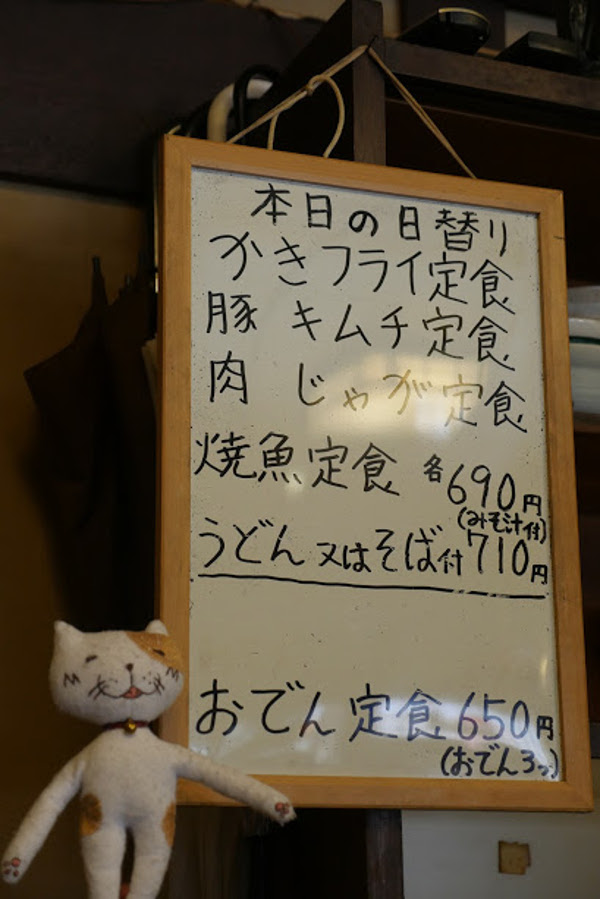 本日の日替り
かきフライ定食
豚キムチ定食
肉じゃが定食
焼魚定食 各690円
(みそ汁付)
うどん又はそば付710円
おでん定食650円
(おでん3つ)